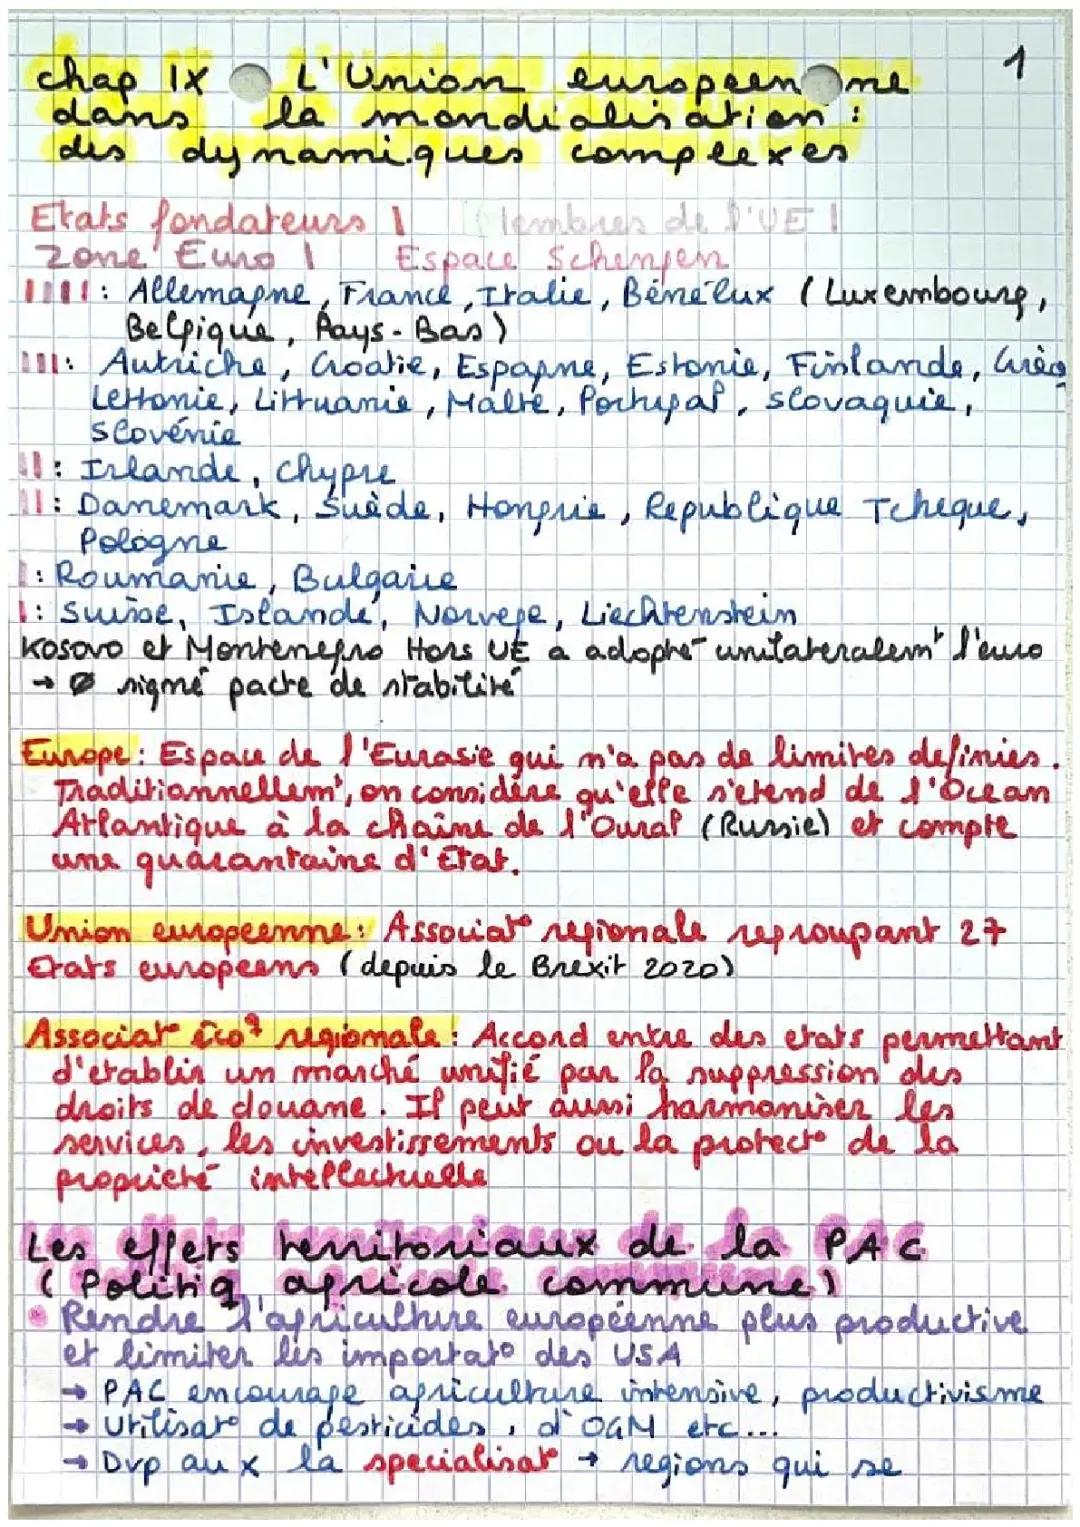 1
chap IX L'Union européenne
dans la mondialisation :
des dynamiques complexes
Etats fondateurs | Membres de l'UE |
Zone Euro | Espace Schengen
||||: Allemagne, France, Italie, Bénélux (Luxembourg,
Belgique, Pays-Bas)
|||: Autriche, Croatie, Espagne, Estonie, Finlande, Grèc
Lettonie, Littuanie, Malte, Portugal, Slovaquie,
Slovénie
||: Irlande, Chypre
||: Danemark, Suède, Hongrie, Republique Tcheque,
Pologne
|: Roumanie, Bulgarie
|: Suisse, Islande, Norvege, Liechtenstein
Kosovo et Montenegro Hors UE a adopté unilateralemt l'euro
→ Ø signé pacte de stabilité
Europe : Espace de l'Eurasie qui n'a pas de limites definies.
Traditionnellemt, on considère qu'elle s'etend de l'Ocean
Atlantique à la chaîne de l'Oural (Russie) et compte
une quarantaine d'Etat.
Union européenne : Associato regionale regroupant 27
Etats européens (depuis le Brexit 2020)
Associato écoq régionale : Accord entre des etats permettant
d'etablir un marché unifié par la suppression des
droits de douane. Il peut aussi harmoniser les
services, les investissements ou la protecto de la
propriété intellectuelle
Les effets territoriaux de la PAC
(Politiq agricole commune)
• Rendre l'agriculture européenne plus productive
et limiter les importato des USA
→ PAC encourage agriculture intensive, productivisme
→ Utilisato de pesticides, d'OGM etc...
→ Dvp aux la specialisato → regions qui se